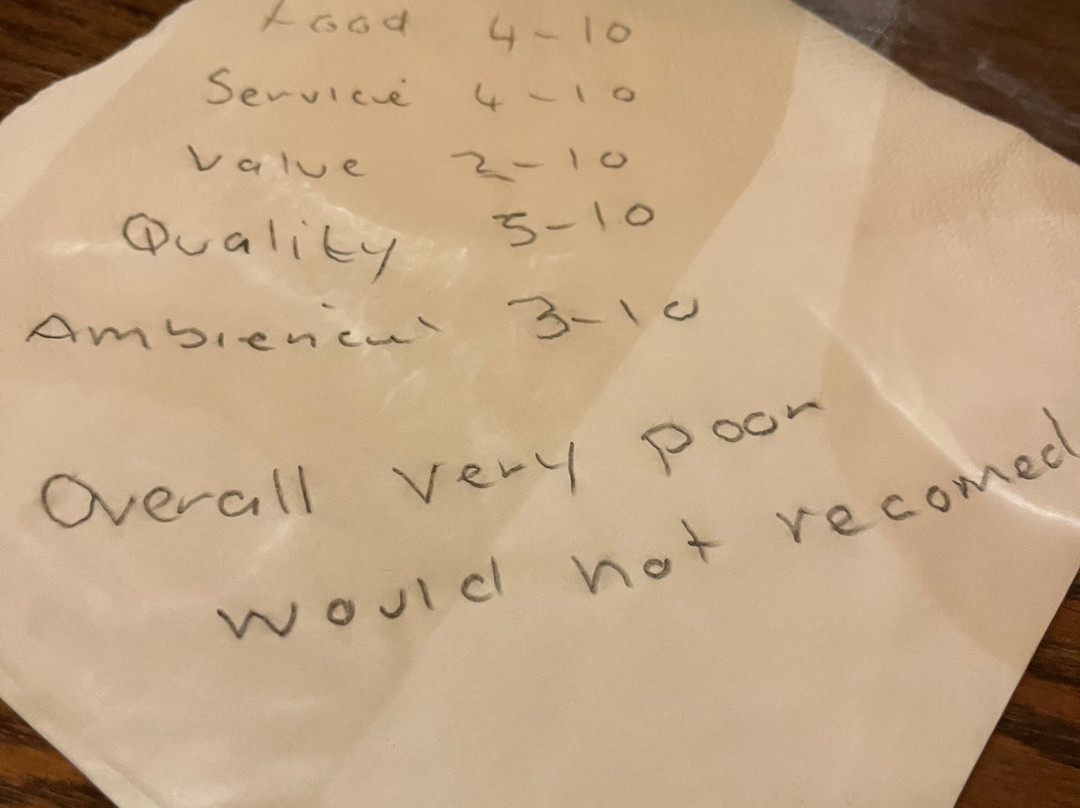 Food 4-10
Service 4-10
Value 2-10
Quality 5-10
Ambience 3-10
Overall very poor
would not recomed